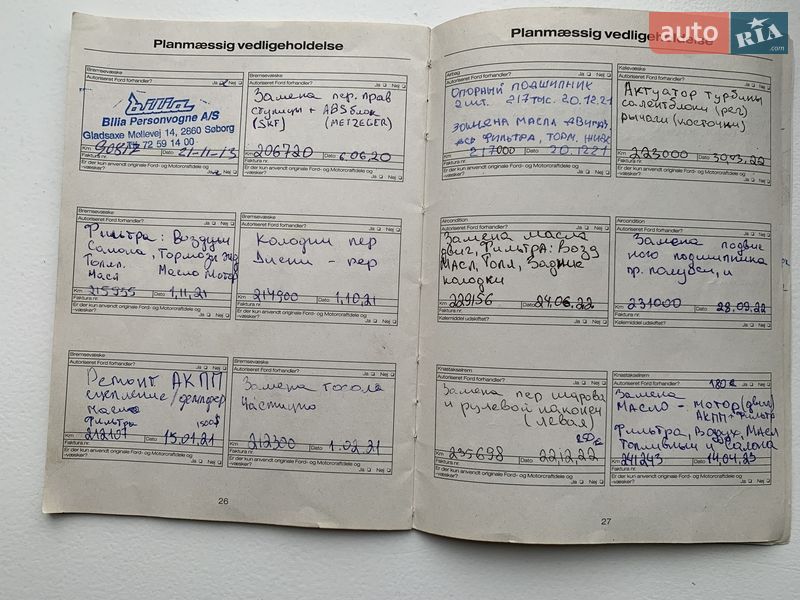 Planmæssig vedligeholdelse
Bremsevæske
Autoriseret Ford forhandler?
Ja Nej
Bilia
Bilia Personvogne A/S
Gladsaxe Møllevej 14, 2860 Søborg
Tlf. 72 59 14 00
Km Dato 21-11-13
Faktura nr.
Er der kun anvendt originale Ford- og Motorcraftdele og -væsker?
Ja Nej
Bremsevæske
Autoriseret Ford forhandler?
Ja Nej
Замена пер. прав
ступицы + ABS блок
(SKF) (METZGER)
Km 206720 Dato 6.06.20
Faktura nr.
Er der kun anvendt originale Ford- og Motorcraftdele og -væsker?
Ja Nej
Bremsevæske
Autoriseret Ford forhandler?
Ja Nej
Фильтра: Воздуш
Салона, Тормоза зад
Топл.
Масл Масло мотор
Km 215955 Dato 1,11,21
Faktura nr.
Er der kun anvendt originale Ford- og Motorcraftdele og -væsker?
Ja Nej
Bremsevæske
Autoriseret Ford forhandler?
Ja Nej
Колодки пер
Диски - пер
Km 214900 Dato 1,10,21
Faktura nr.
Er der kun anvendt originale Ford- og Motorcraftdele og -væsker?
Ja Nej
Bremsevæske
Autoriseret Ford forhandler?
Ja Nej
Ремонт АКПП
сцепление/демпфер
масло
Фильтра 1500$
Km 212107 Dato 15.01.21
Faktura nr.
Er der kun anvendt originale Ford- og Motorcraftdele og -væsker?
Ja Nej
Bremsevæske
Autoriseret Ford forhandler?
Ja Nej
Замена тосола
частично
Km 212300 Dato 1.02.21
Faktura nr.
Er der kun anvendt originale Ford- og Motorcraftdele og -væsker?
Ja Nej
26
Planmæssig vedligeholdelse
auto RIA .com
Airbag
Autoriseret Ford forhandler?
Ja Nej
ОПОРНЫЙ ПОДШИПНИК
2 шт. 217тыс. 20.12.21
ЗАМЕНА МАСЛА ДВИГ
ФИЛЬТРА, ТОРМ.
Km 217000 Dato 20.12.21
Faktura nr.
Er der kun anvendt originale Ford- og Motorcraftdele og -væsker?
Ja Nej
Kølevæske
Autoriseret Ford forhandler?
Ja Nej
Актуатор турбины
салентблоки (рег)
рычали (косточки)
Km 223000 Dato 30.03.22
Faktura nr.
Er der kun anvendt originale Ford- og Motorcraftdele og -væsker?
Ja Nej
Aircondition
Autoriseret Ford forhandler?
Ja Nej
Замена масла
двиг, Фильтра: Возд
Масл, Топл, Задние
колодки
Km 229156 Dato 24.06.22
Faktura nr.
Er der kun anvendt originale Ford- og Motorcraftdele og -væsker?
Ja Nej
Kølemiddel udskiftet?
Aircondition
Autoriseret Ford forhandler?
Ja Nej
Замена подвес
ного подшипника
пр. полуоси, и
Km 231000 Dato 28.09.22
Faktura nr.
Er der kun anvendt originale Ford- og Motorcraftdele og -væsker?
Ja Nej
Kølemiddel udskiftet?
Knastakselrem
Autoriseret Ford forhandler?
Ja Nej
Замена пер шарова
и рулевой наконеч
(левая)
Km 235698 Dato 22,12,22
Faktura nr.
Er der kun anvendt originale Ford- og Motorcraftdele og -væsker?
Ja Nej
Knastakselrem
Autoriseret Ford forhandler?
180€ Ja Nej
Замена
МАСЛО - МОТОР (двиг)
АКПП + Фильтр
Фильтра, Воздух, Масл
Топливный и Салона
Km 241243 Dato 14.04.23
Faktura nr.
Er der kun anvendt originale Ford- og Motorcraftdele og -væsker?
Ja Nej
27